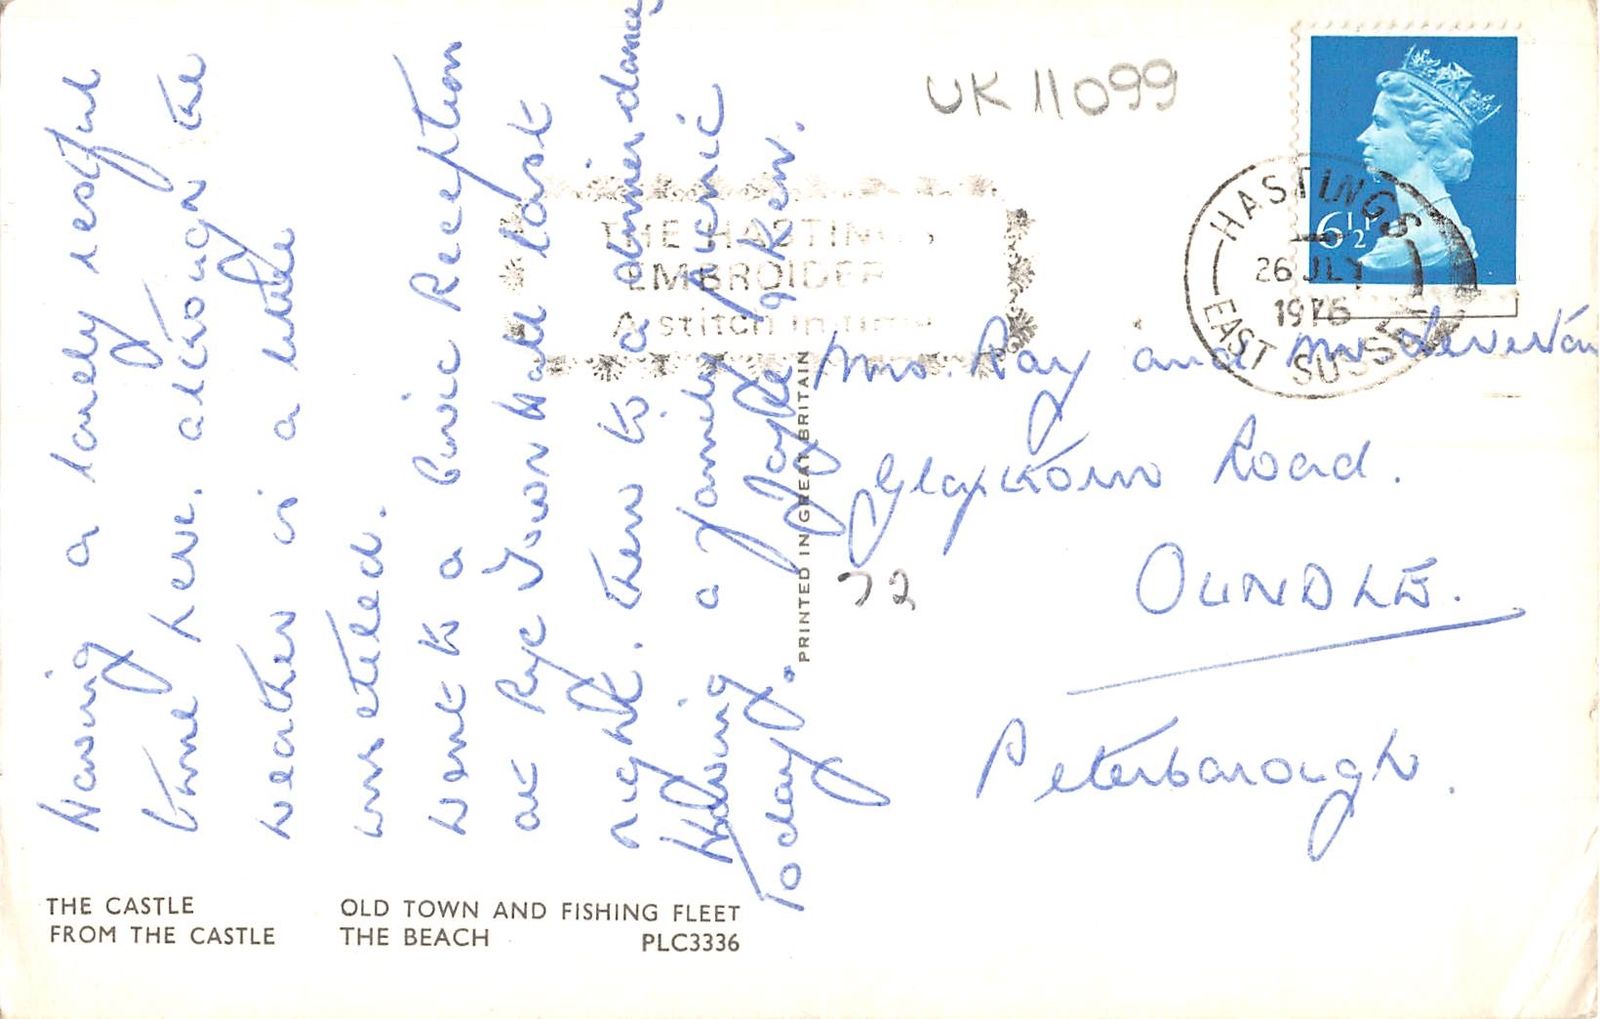 Having a lovely restful
time here. although the
weather is a little
unsettled.
Went to a Civic Reception
at Rye Town Hall last
night. then to a dinner dance,
Having a family picnic
Today. Joyce & Ken.
UK 11099
THE HASTINGS
EMBROIDER
A stitch in time
HASTINGS
26 JLY
1976
EAST SUSSEX
6½P
Mrs. Ray and Mr
Glapthorn Road.
OUNDLE.
Peterborough.
72
PRINTED IN GREAT BRITAIN
THE CASTLE OLD TOWN AND FISHING FLEET
FROM THE CASTLE THE BEACH PLC3336